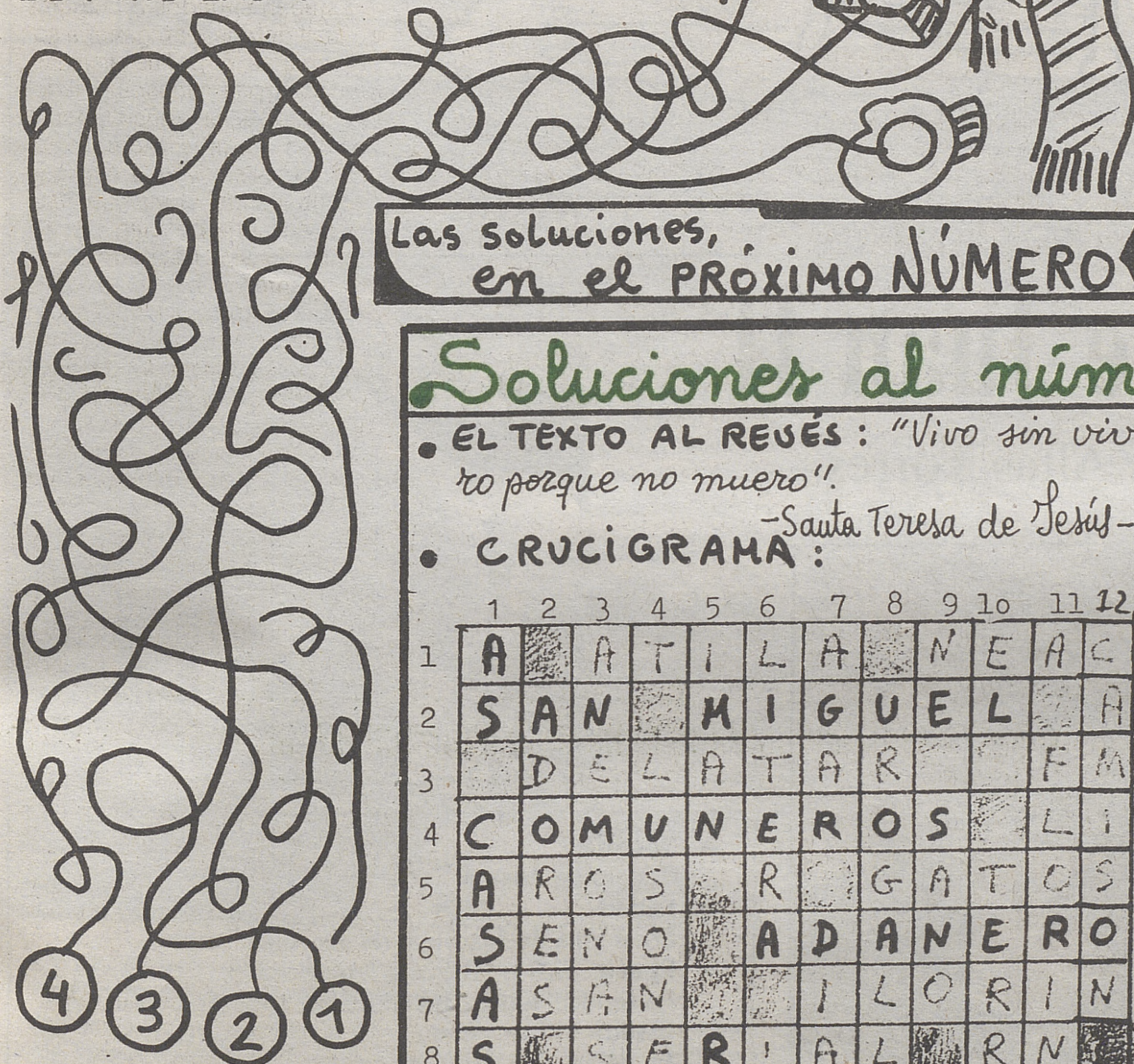 Las soluciones,
en el PRÓXIMO NÚMERO
Soluciones al núm
• EL TEXTO AL REVÉS : "Vivo sin viv
ro porque no muero".
-Santa Teresa de Jesús-
• CRUCIGRAMA :
1 2 3 4 5 6 7 8 9 10 11 12
1 A A T I L A N E A C
2 S A N M I G U E L A
3 D E L A T A R F M
4 C O M U N E R O S L I
5 A R O S R G A T O S
6 S E N O A D A N E R O
7 A S A N I L O R I N
8 S S E R I A L R N
4 3 2 1